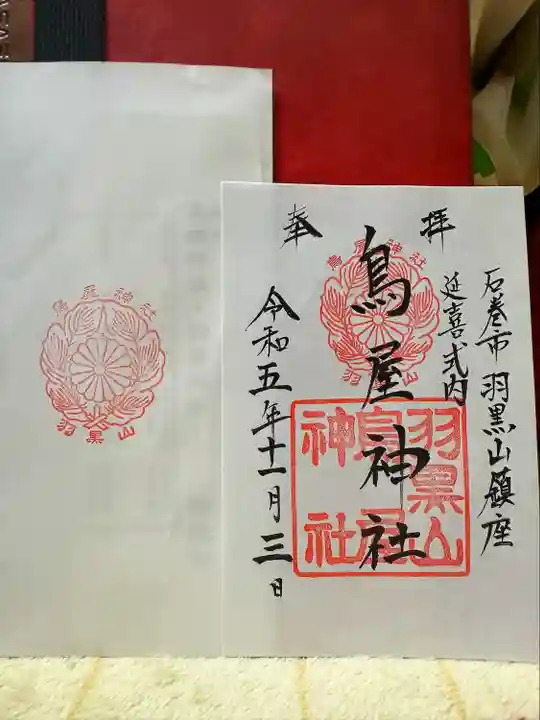 奉
拝
石巻市 羽黒山鎮座
延喜式内
鳥屋神社
令和五年十一月三日
鳥屋神社
羽黒山
羽黒山
鳥屋
神社
鳥屋神社
羽黒山